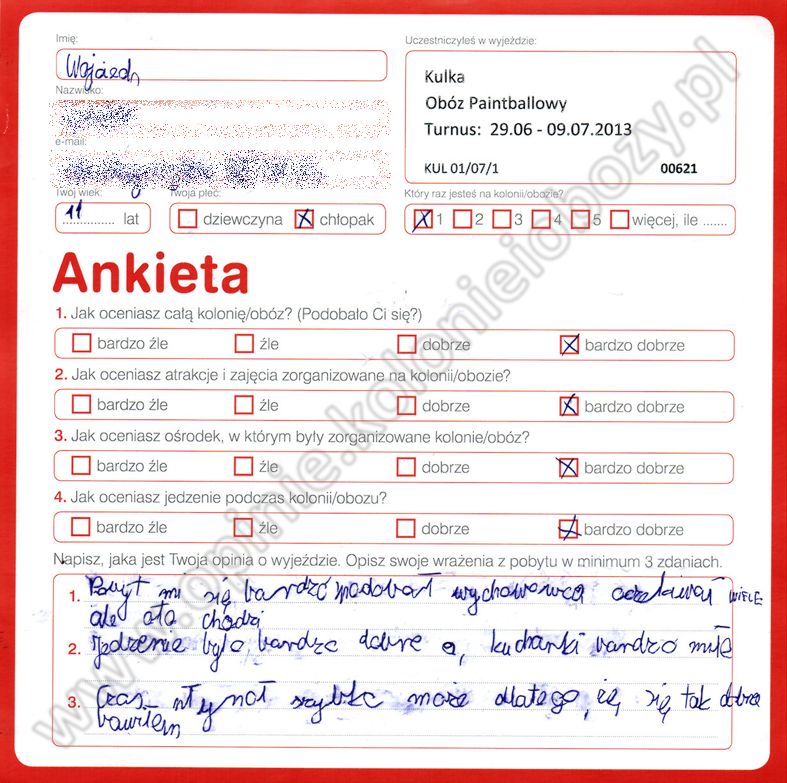 Imię:
Uczestniczyłeś w wyjeździe:
Wojciech
Kulka
Obóz Paintballowy
Turnus: 29.06 - 09.07.2013
KUL 01/07/1 00621
Nazwisko:
e-mail:
Twój wiek: Twoja płeć: Który raz jesteś na kolonii/obozie?
11 lat dziewczyna chłopak 1 2 3 4 5 więcej, ile .......
Ankieta
1. Jak oceniasz całą kolonię/obóz? (Podobało Ci się?)
bardzo źle źle dobrze bardzo dobrze
2. Jak oceniasz atrakcje i zajęcia zorganizowane na kolonii/obozie?
bardzo źle źle dobrze bardzo dobrze
3. Jak oceniasz ośrodek, w którym były zorganizowane kolonie/obóz?
bardzo źle źle dobrze bardzo dobrze
4. Jak oceniasz jedzenie podczas kolonii/obozu?
bardzo źle źle dobrze bardzo dobrze
Napisz, jaka jest Twoja opinia o wyjeździe. Opisz swoje wrażenia z pobytu w minimum 3 zdaniach.
1. Pobyt mi się bardzo podobał wychowawca oczekiwał WIELE
ale oto chodzi
2. jedzenie było bardzo dobre a, kucharki bardzo miłe
3. Czas płynął szybko może dlatego, że się tak dobrze
bawiłem
www.opinie.kolonieiobozy.pl